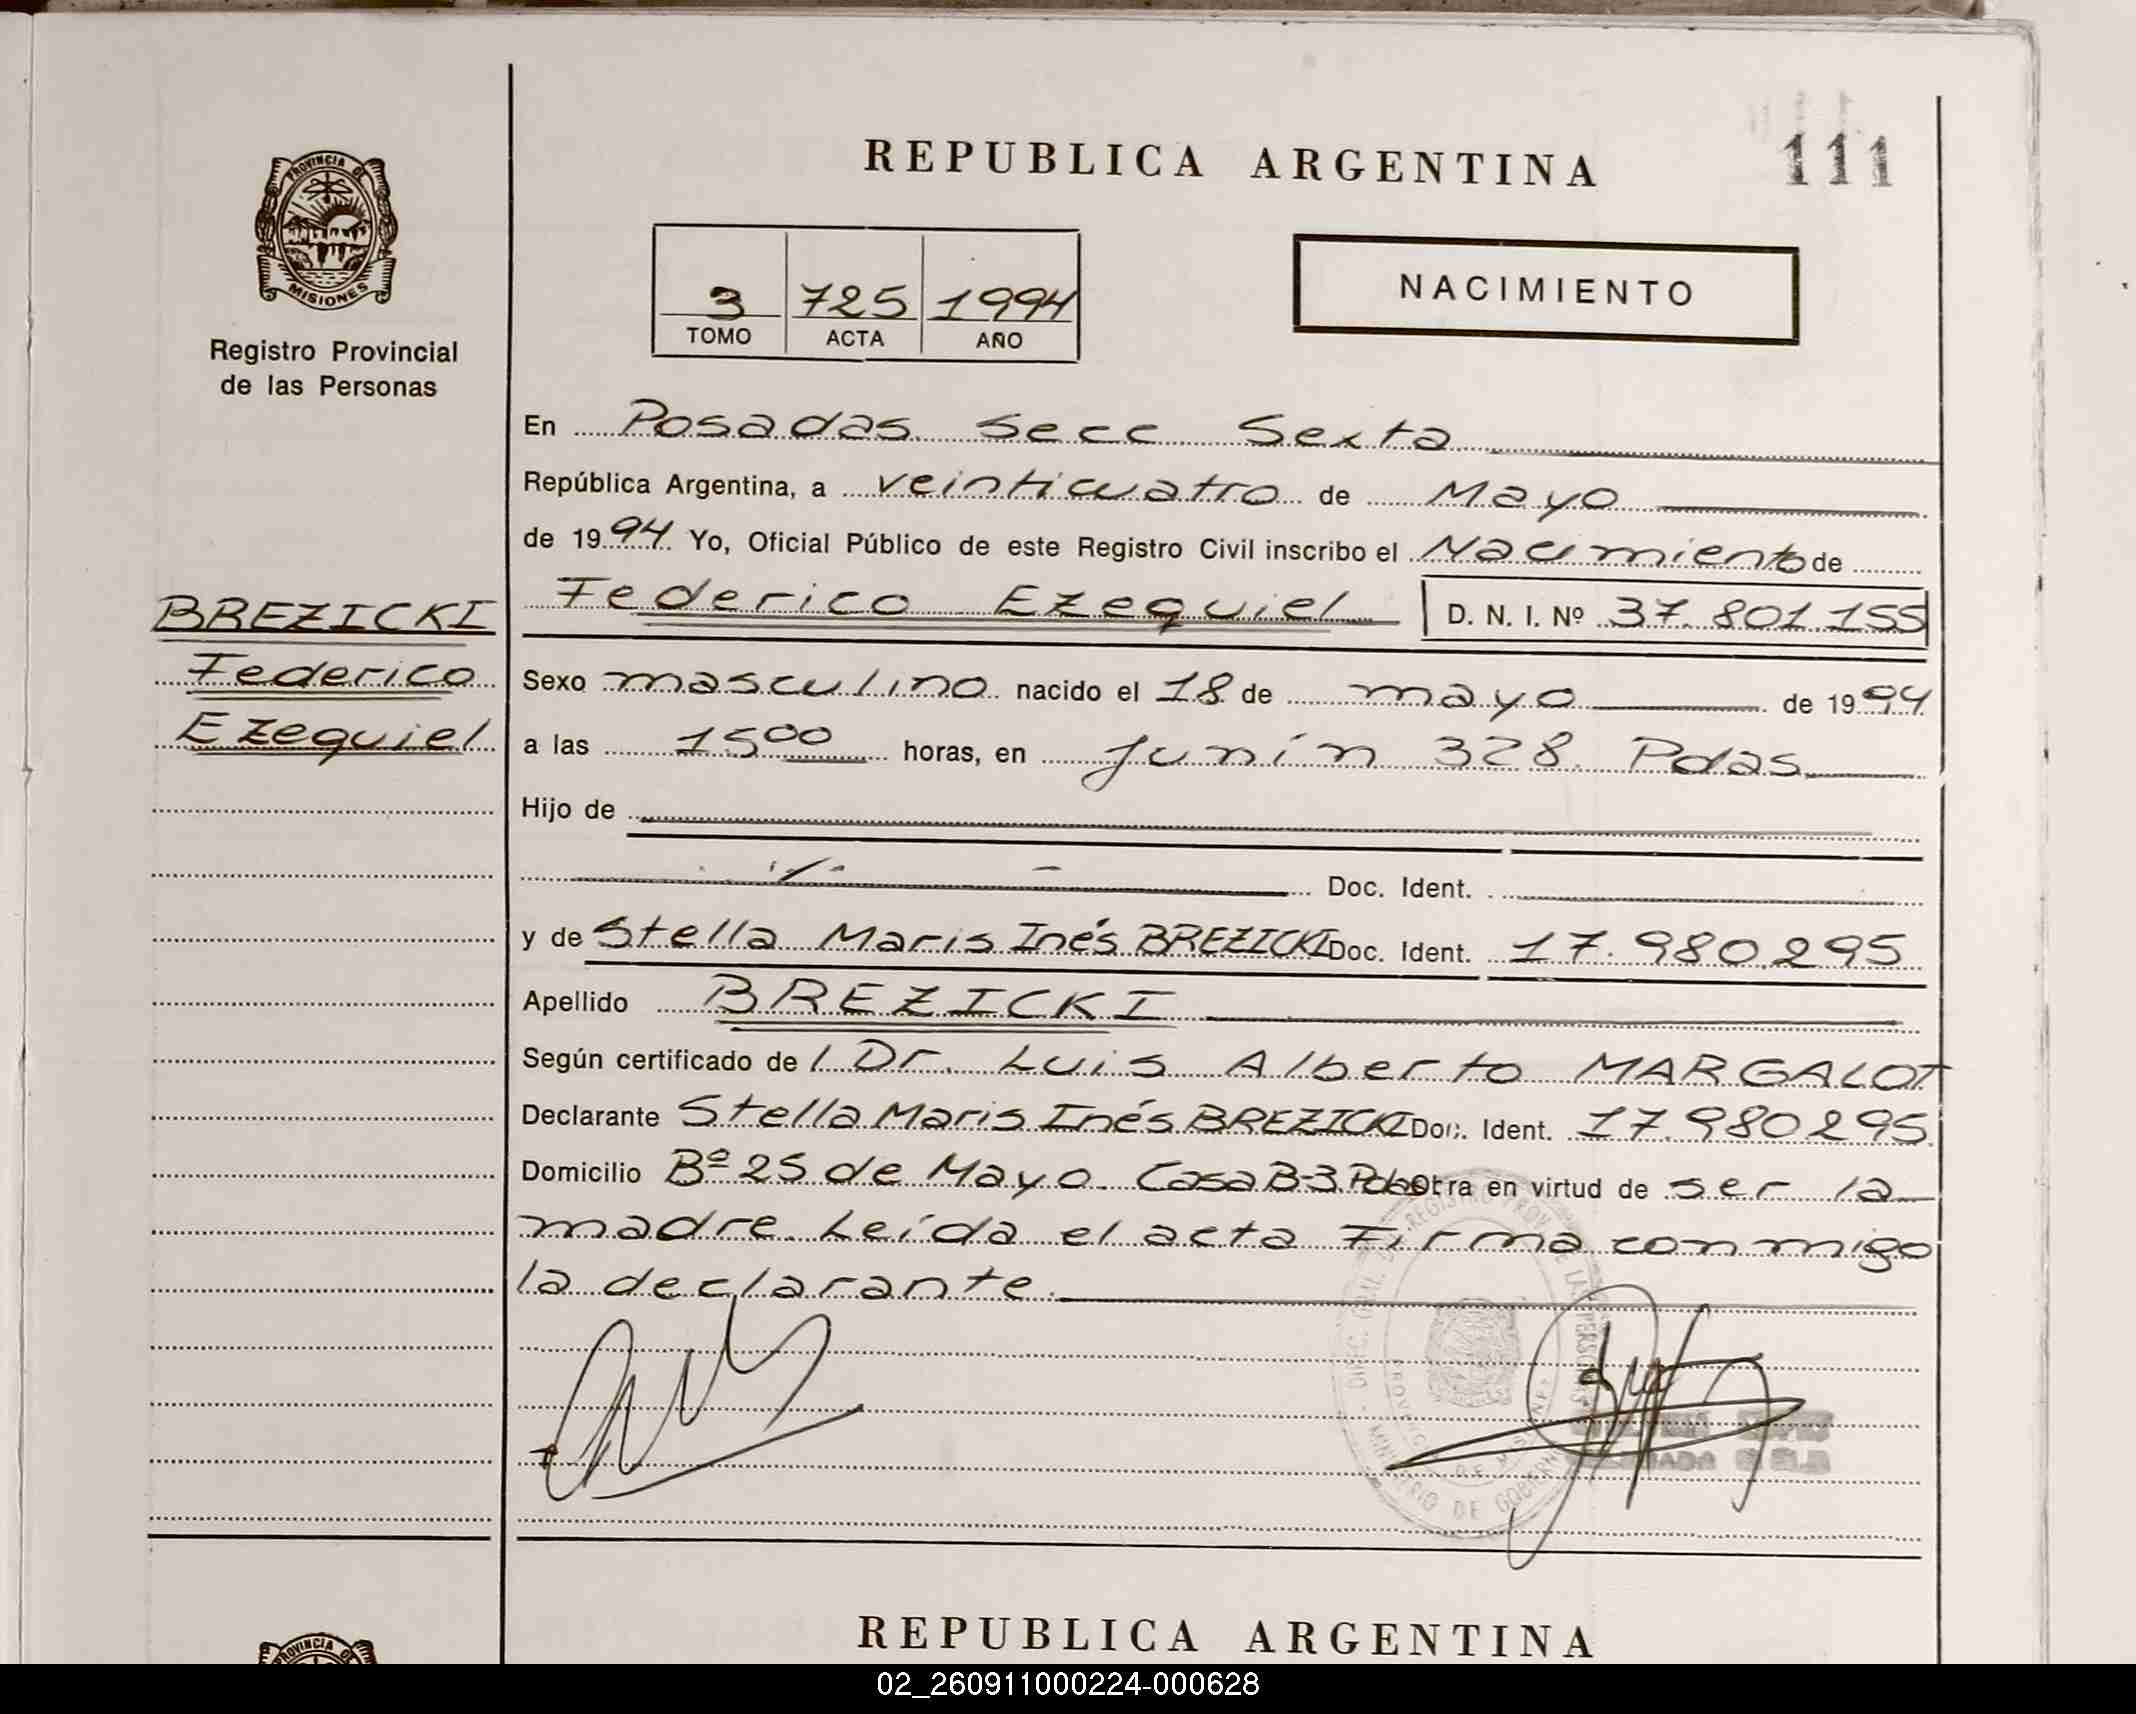 REPUBLICA ARGENTINA
111
PROVINCIA DE
MISIONES
Registro Provincial
de las Personas
3 725 1994
TOMO ACTA AÑO
NACIMIENTO
En Posadas Secc Sexta
República Argentina, a veinticuatro de Mayo
de 1994 Yo, Oficial Público de este Registro Civil inscribo el Nacimiento de
Federico Ezequiel D. N. I. Nº 37.801.155
BREZICKI
Federico
Ezequiel
Sexo masculino nacido el 18 de mayo de 1994
a las 15 00 horas, en Junín 328. Pdas
Hijo de
Doc. Ident.
y de Stella Maris Inés BREZICKI Doc. Ident. 17.980.295
Apellido BREZICKI
Según certificado de l Dr. Luis Alberto MARGALOT
Declarante Stella Maris Inés BREZICKI Doc. Ident. 17.980295
Domicilio Bº 25 de Mayo. Casa B-3 Pdas Otra en virtud de ser la
madre. Leída el acta Firma conmigo
la declarante.
DIREC. GRAL. REGISTRO PROV. DE LAS PERSONAS
PROVINCIA DE MISIONES
MINISTERIO DE GOBIERNO
PROVINCIA DE
REPUBLICA ARGENTINA
02_260911000224-000628